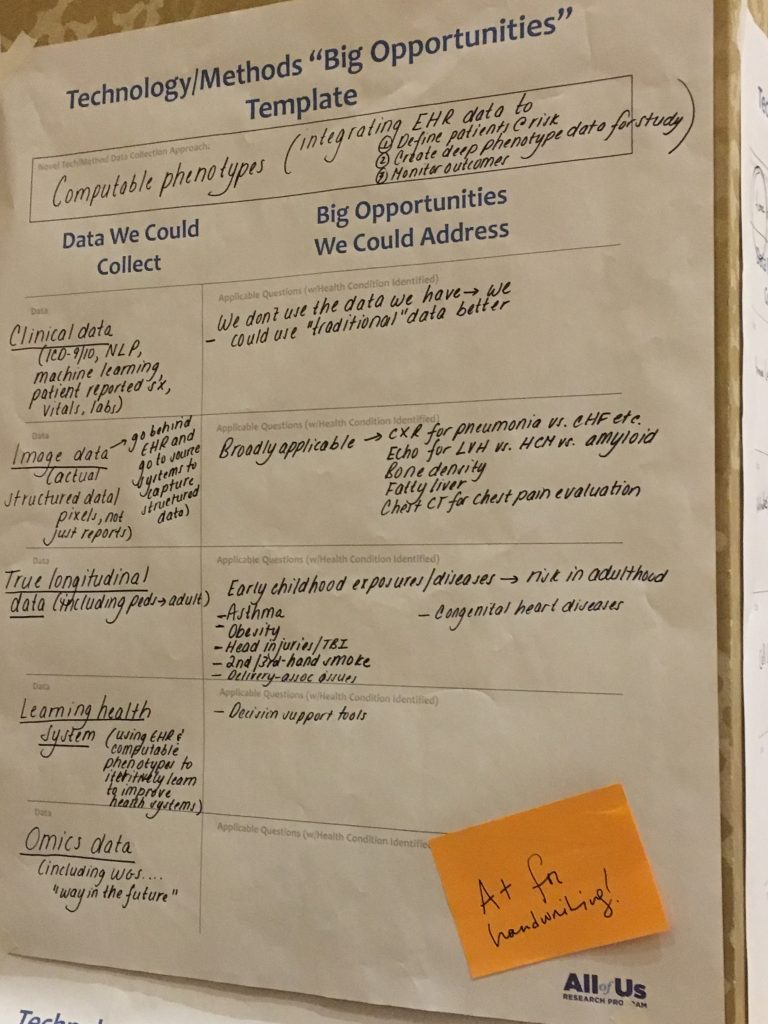 Technology/Methods “Big Opportunities”
Template
Novel Tech/Method Data Collection Approach:
Computable phenotypes (integrating EHR data to
① Define patients @ risk
② Create deep phenotype data for study)
③ Monitor outcomes
Data We Could
Collect
Big Opportunities
We Could Address
Data
Clinical data
(ICD-9/10, NLP,
machine learning,
patient reported sx,
vitals, labs)
Applicable Questions (w/Health Condition Identified)
We don't use the data we have → we
- could use "traditional" data better
Data
Image data
(actual
structured data/
pixels, not
just reports)
→ go behind
EHR and
go to source
systems to
capture
structured
data)
Applicable Questions (w/Health Condition Identified)
Broadly applicable → CXR for pneumonia vs. CHF etc.
Echo for LVH vs. HCM vs. amyloid
Bone density
Fatty liver
Chest CT for chest pain evaluation
Data
True longitudinal
data (including peds → adult)
Applicable Questions (w/Health Condition Identified)
Early childhood exposures/diseases → risk in adulthood
- Asthma
- Obesity
- Head injuries/TBI
- 2nd/3rd-hand smoke
- Delivery-assoc issues
- Congenital heart diseases
Data
Learning health
system (using EHR &
computable
phenotypes to
iteritively learn
to improve
health systems)
Applicable Questions (w/Health Condition Identified)
- Decision support tools
Data
Omics data
(including WGS....
"way in the future"
Applicable Questions (w/Health Condition Identified
A+ for
handwriting!
All of Us
RESEARCH PROGRAM